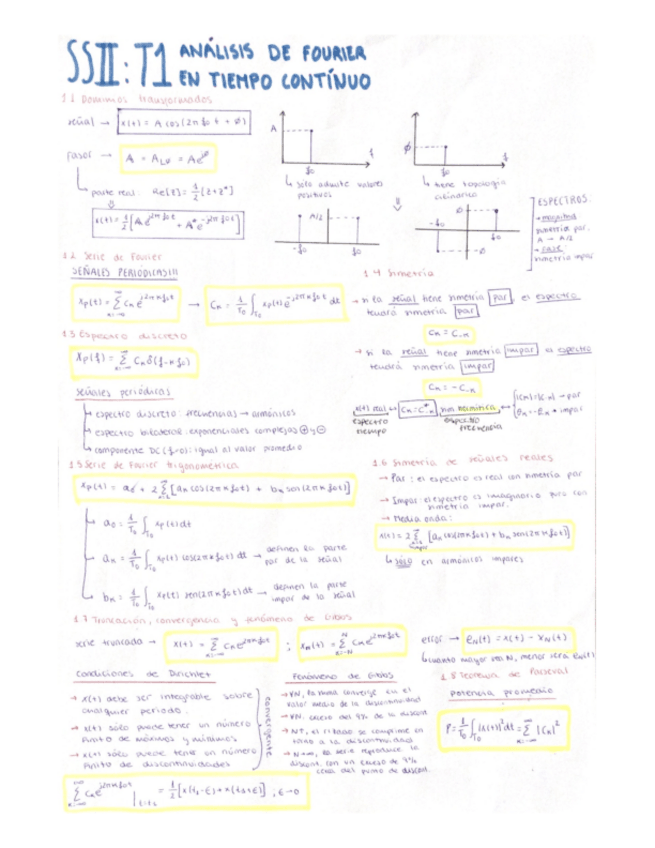 SSII: T1 ANÁLISIS DE FOURIER
EN TIEMPO CONTÍNUO
1.1 Dominios transformados
señal → x(t) = A cos(2π f₀ t + φ)
fasor → A = A∟φ = Ae^{jφ}
parte real: Re{z} = 1/2 [z+z*]
x(t) = 1/2 [A e^{j2πf₀t} + A* e^{-j2πf₀t}]
A
f₀
f
sólo admite valores
positivos
φ
f₀
f
tiene topología
cilíndrica
A/2
-f₀
f₀
-f₀
φ
f₀
-φ
ESPECTROS:
→ magnitud
simetría par.
A → A/2
→ fase
simetría impar
1.2 Serie de Fourier
SEÑALES PERIODICAS!!!
xp(t) = Σ cₙ e^{j2πn f₀t} → cₙ = 1/T₀ ∫_{T₀} xp(t) e^{-j2πn f₀t} dt
1.3 Espectro discreto
Xp(f) = Σ cₙ δ(f-n f₀)
señales periódicas
espectro discreto: frecuencias → armónicos
espectro bilateral: exponenciales complejas ⊕ y ⊖
componente DC (f=0): igual al valor promedio
1.4 Simetría
→ si la señal tiene simetría par, el espectro
tendrá simetría par
cₙ = c₋ₙ
→ si la señal tiene simetría impar el espectro
tendrá simetría impar
cₙ = -c₋ₙ
x(t) real ↔ cₙ = c*₋ₙ
|cₙ|=|c₋ₙ| → par
θₙ = -θ₋ₙ → impar
espectro
tiempo
espectro
frecuencia
1.5 Serie de Fourier trigonométrica
xp(t) = a₀ + 2 Σ [aₙ cos(2πn f₀t) + bₙ sen(2πn f₀t)]
a₀ = 1/T₀ ∫_{T₀} xp(t) dt
aₙ = 1/T₀ ∫_{T₀} xp(t) cos(2πn f₀t) dt → definen la parte
par de la señal
bₙ = 1/T₀ ∫_{T₀} xp(t) sen(2πn f₀t) dt → definen la parte
impar de la señal
1.6 Simetría de señales reales
→ Par: el espectro es real con simetría par
→ Impar: el espectro es imaginario puro con
simetría impar.
→ Media onda:
x(t) = 2 Σ [aₙ cos(2πn f₀t) + bₙ sen(2πn f₀t)]
impar
sólo en armónicos impares
1.7 Truncación, convergencia y fenómeno de Gibbs
serie truncada → x(t) = Σ cₙ e^{j2πn f₀t} ; x_N(t) = Σ cₙ e^{j2πn f₀t}
error → e_N(t) = x(t) - x_N(t)
cuanto mayor sea N, menor será e_N(t)
Condiciones de Dirichlet
→ x(t) debe ser integrable sobre
cualquier periodo.
→ x(t) sólo puede tener un número
finito de máximos y mínimos
→ x(t) sólo puede tener un número
finito de discontinuidades
convergente
Σ cₙ e^{j2πn f₀t} |_{t=t₀} = 1/2 [x(t₀-ε) + x(t₀+ε)] ; ε→0
Fenómeno de Gibbs
→ ∀N, la suma converge en el
valor medio de la discontinuidad
→ ∀N, exceso del 9% de la discont.
→ N↑, el rizado se comprime en
torno a la discontinuidad
→ N→∞, la serie reproduce la
discont. con un exceso de 9%
cerca del punto de discont.
1.8 Teorema de Parseval
potencia promedio
P = 1/T₀ ∫_{T₀} |x(t)|² dt = Σ |cₙ|²